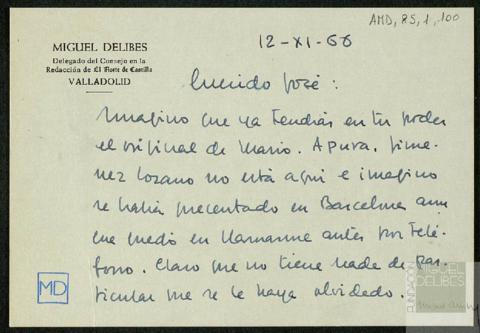 AMD, 85, 1, 100
MIGUEL DELIBES
Delegado del Consejo en la
Redacción de El Norte de Castilla
VALLADOLID
12-XI-66
Querido José:
Imagino que ya tendrás en tu poder
el original de Mario. Apura. Jimé-
nez Lozano no está aquí e imagino
se habrá presentado en Barcelona aun
que quedó en llamarme antes por telé-
fono. Claro que no tiene nada de par-
ticular que se le haya olvidado.
MD
FUNDACIÓN
MIGUEL
DELIBES